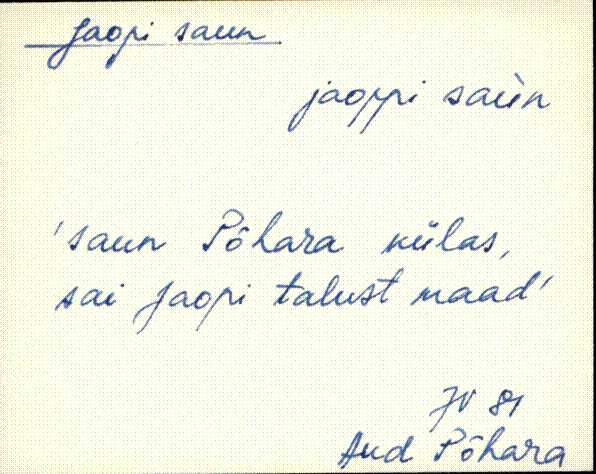 Jaopi saun
jaoppi saùn
'saun Põhara külas,
sai Jaopi talust maad'
JV 81
Aud Põhara